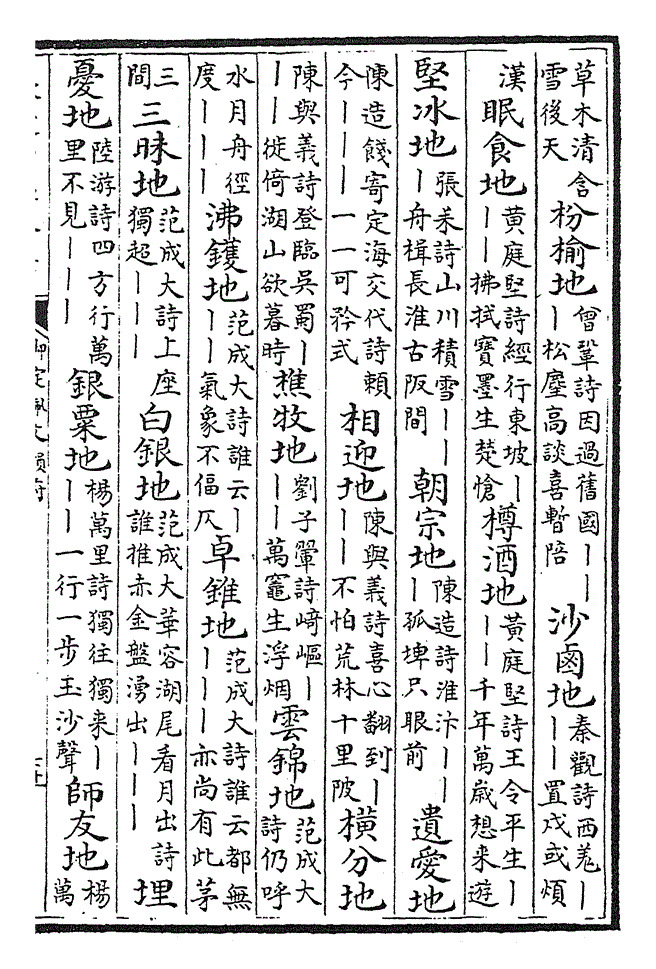 草木清含雪後天 枌榆地 曾鞏詩因過舊國丨丨丨松塵高談喜暫陪 沙鹵地 秦觀詩西羌丨丨丨置戍或煩
漢 眠食地 黃庭堅詩經行東坡丨丨丨拂拭寶墨生楚愴 樽酒地 黃庭堅詩王令平生丨丨丨千年萬歲想来遊
堅冰地 張耒詩山川積雪丨丨丨舟楫長淮古阪間 朝宗地 陳造詩淮汴丨丨丨孤埤只眼前 遺愛地
陳造餞寄定海交代詩頼今丨丨丨一一可矜式 相迎地 陳與義詩喜心翻到丨丨丨不怕荒林十里陂 橫分地
陳與義詩登臨吳蜀丨丨丨徙倚湖山欲暮時 樵牧地 劉子翬詩崎嶇丨丨丨萬竈生浮烟 雲錦地 范成大詩仍呼
水月舟徑度丨丨丨 沸鑊地 范成大詩誰云丨丨丨氣象不偪仄 卓錐地 范成大詩誰云都無丨丨丨亦尚有此茅
三間 三昧地 范成大詩上座獨超丨丨丨 白銀地 范成大華容湖尾看月出詩誰推赤金盤湧出丨丨丨 埋
憂地 陸游詩四方行萬里不見丨丨丨 銀粟地 楊萬里詩獨往獨来丨丨丨一行一步玉沙聲 師友地 楊萬
御定佩文韻府